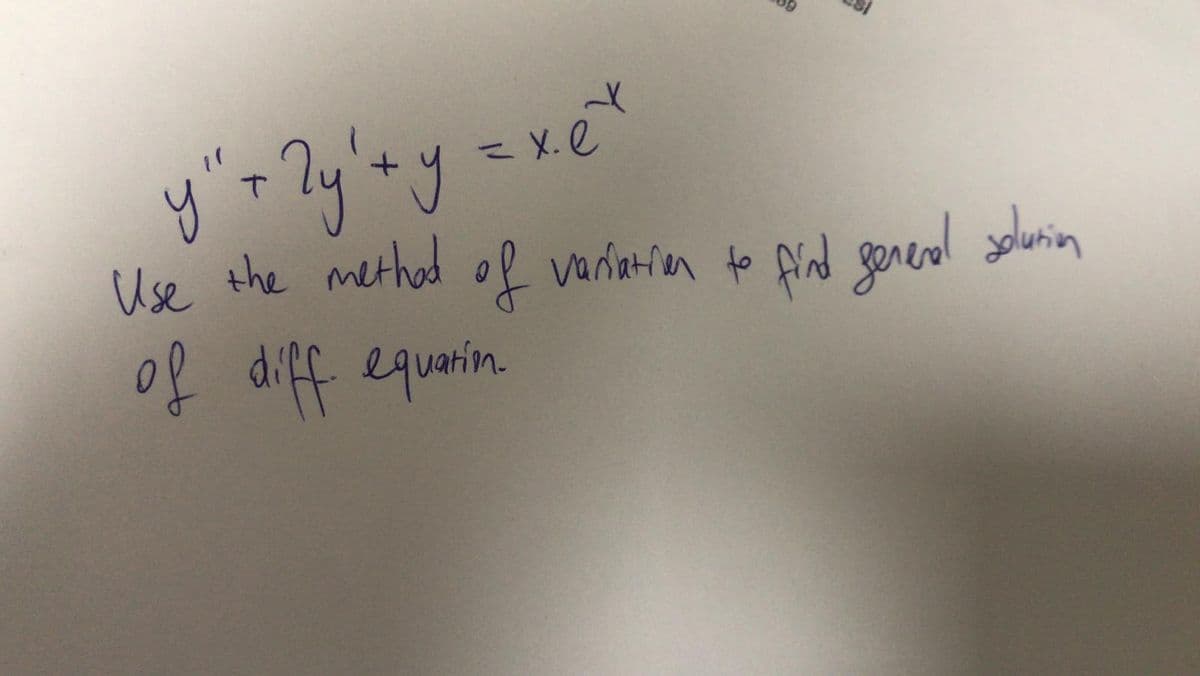 y'' + 2y' + y = x.e^-x
Use the method of variation to find general solution
of diff. equation.